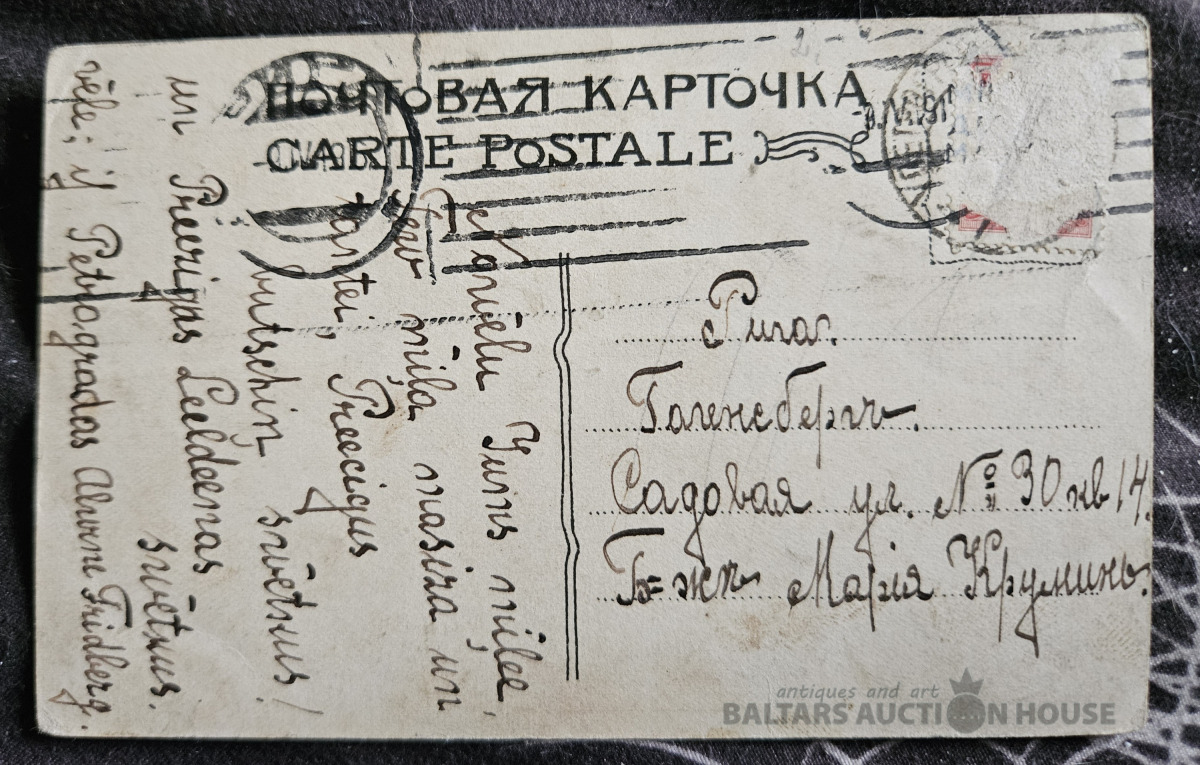 ПОЧТОВАЯ КАРТОЧКА
CARTE POSTALE
Рига.
Гагенсбергъ.
Садовая ул. № 30 кв 14.
Б-жѣ Марія Круминь.
Nowēlu Jums mīļee,
Teew mīļa masiņa un
tantei, Preecigus
butschiņ swētkus!
un Preezigas Leeldeenas
swētkus.
vēle; iz Petrogradas Alwine Fridberg.
antiques and art
BALTARS AUCTION HOUSE